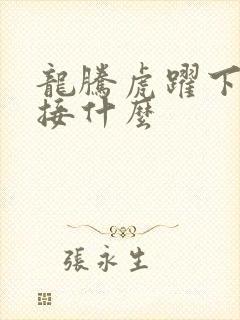 龍騰虎躍下
接什麼
張永生